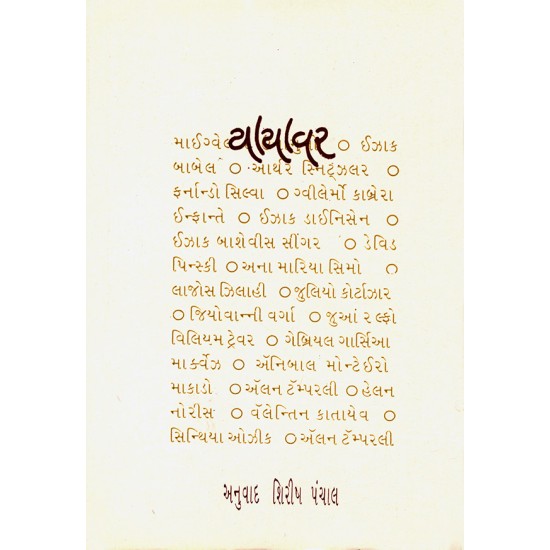 યાયાવર
માઈગ્વેલ ○ ઈઝાક
બાબેલ ○ આર્થર સ્નિટ્ઝલર ○
ફર્નાન્ડો સિલ્વા ○ ગ્વીલેર્મો કાબ્રેરા
ઈન્ફાન્તે ○ ઈઝાક ડાઈનિસેન ○
ઈઝાક બાશેવીસ સીંગર ○ ડેવિડ
પિન્સ્કી ○ અના મારિયા સિમો ○
લાજોસ ઝિલાહી ○ જુલિયો કોર્ટાઝાર
○ જિયોવાન્ની વર્ગા ○ જુઆં રલ્ફો
વિલિયમ ટ્રેવર ○ ગેબ્રિયલ ગાર્સિઆ
માર્ક્વેઝ ○ ઍનિબાલ મોન્ટેઈરો
માકાડો ○ ઍલન ટૅમ્પરલી ○ હેલન
નોરીસ ○ વૅલેન્તિન કાતાયેવ ○
સિન્થિયા ઓઝીક ○ ઍલન ટૅમ્પરલી
અનુવાદ શિરીષ પંચાલ